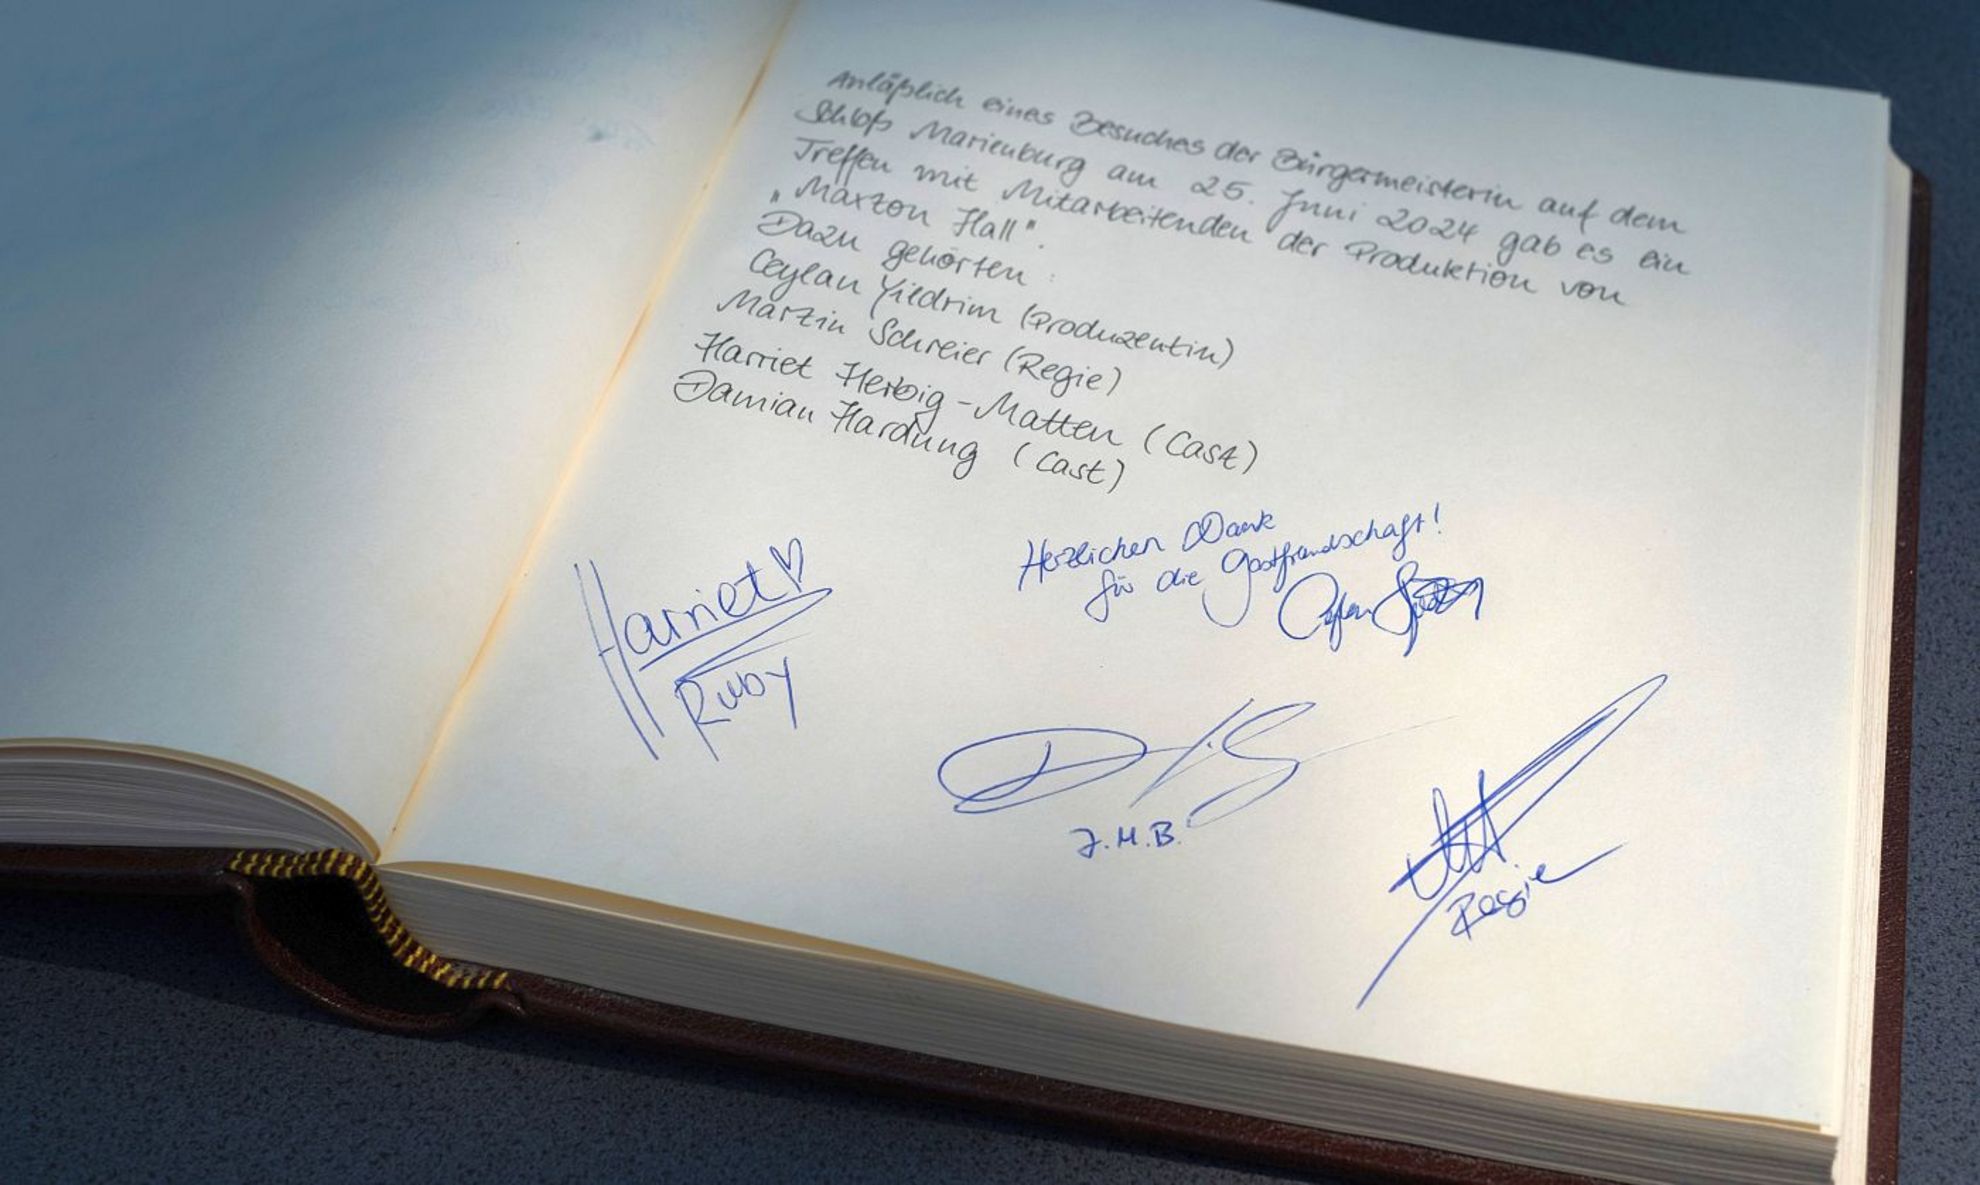 Anläßlich eines Besuches der Bürgermeisterin auf dem
Schloß Marienburg am 25. Juni 2024 gab es ein
Treffen mit Mitarbeitenden der Produktion von
„Maxton Hall".
Dazu gehörten:
Ceylan Yildrim (Produzentin)
Martin Schreier (Regie)
Harriet Herbig-Matten (Cast)
Damian Hardung (Cast)
Herzlichen Dank
für die Gastfreundschaft!
Harriet ♡
Ruby
J.M.B.
Regie